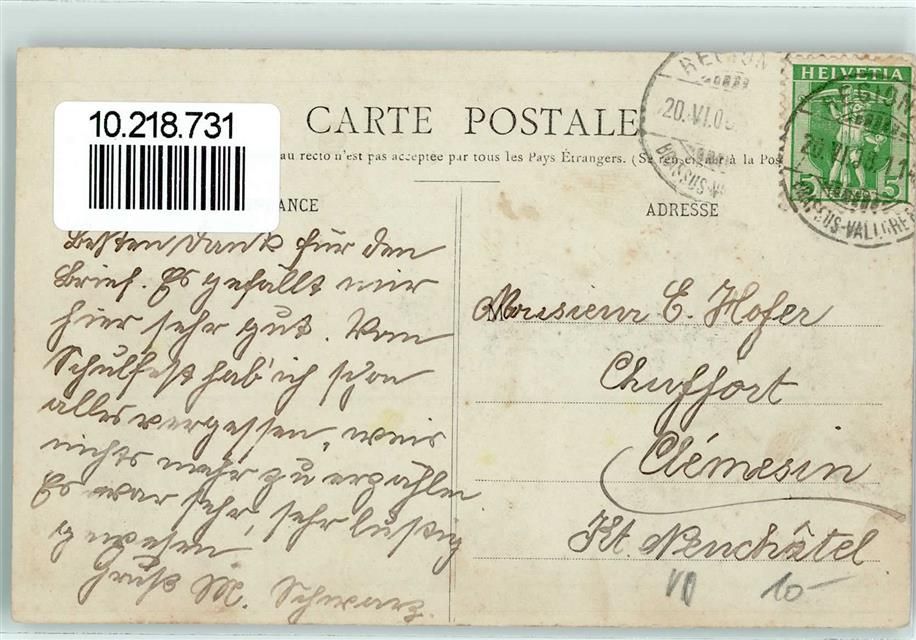 10.218.731
CARTE POSTALE
au recto n'est pas acceptée par tous les Pays Étrangers. (Se renseigner à la Pos
ANCE
ADRESSE
HELVETIA
5 5
REGION
20.VI.0
REGION
20.VI.0
SUS-VALL
Besten Dank für den
Brief. Es gefällt mir
hier sehr gut. Vom
Schulfest hab' ich schon
alles vergessen, weis
nichts mehr zu erzählen
Es war sehr, sehr lustig
gewesen
Gruß M. Schwarz.
Monsieur E. Hofer
Chuffort
Clémesin
Kt. Neuchâtel
VD 10-